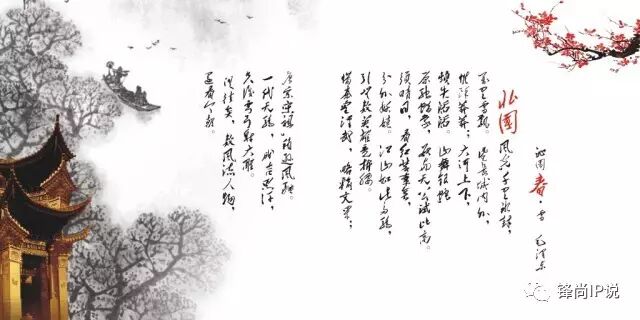 沁园春·雪 毛泽东
北国风光,千里冰封,
万里雪飘。望长城内外,
惟余莽莽;大河上下,
顿失滔滔。山舞银蛇,
原驰蜡象,欲与天公试比高。
须晴日,看红装素裹,
分外妖娆。江山如此多娇,
引无数英雄竞折腰。
惜秦皇汉武,略输文采;
唐宗宋祖,稍逊风骚。
一代天骄,成吉思汗,
只识弯弓射大雕。
俱往矣,数风流人物,
还看今朝。
锋尚IP说